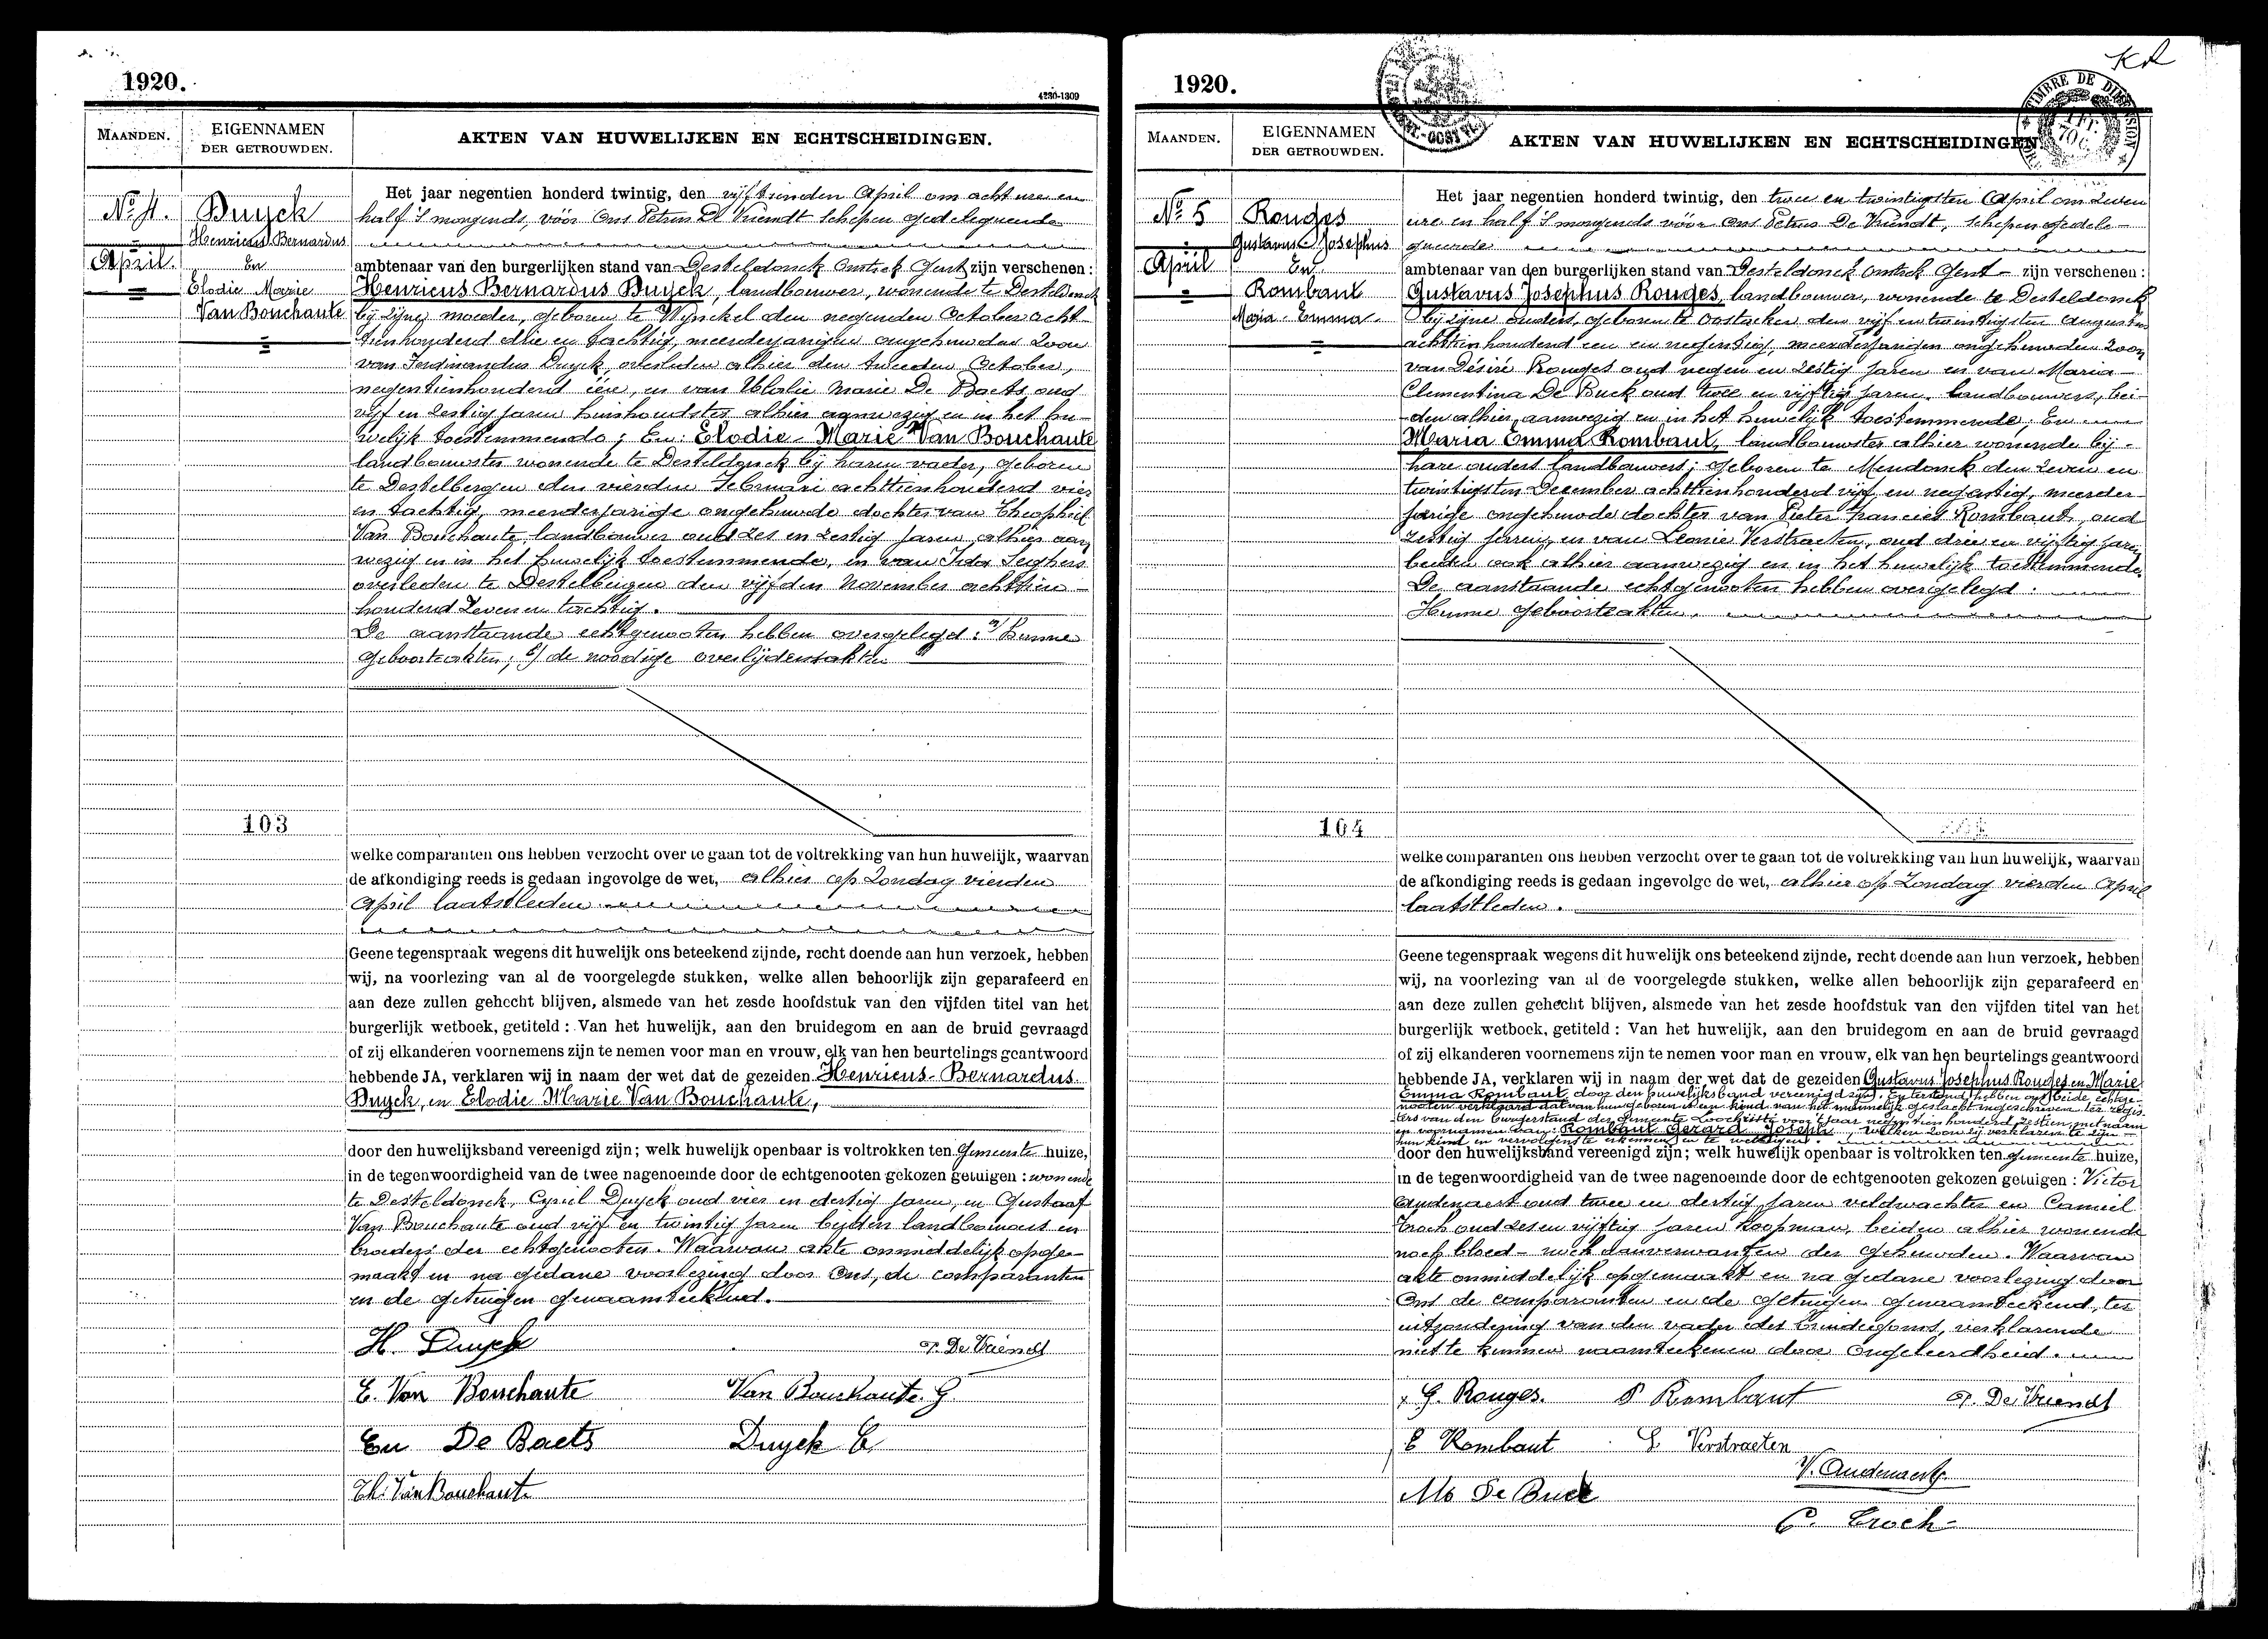 1920.
4230-1309
MAANDEN.
EIGENNAMEN
DER GETROUWDEN.
AKTEN VAN HUWELIJKEN EN ECHTSCHEIDINGEN.
No 4.
April.
Duyck
Henricus Bernardus
En
Elodie Marie
Van Bouchaute
103
Het jaar negentien honderd twintig, den vijftienden April om acht ure en
half 's morgends, vóór Ons Petrus De Vriendt schepen gedelegueerde
ambtenaar van den burgerlijken stand van Desteldonck Omtrek Gent zijn verschenen:
Henricus Bernardus Duyck, landbouwer, wonende te Desteldonck
bij zijne moeder, geboren te Wynckel den negenden October acht-
tienhonderd drie en tachtig, meerderjarigen ongehuwden zoon
van Ferdinandus Duyck, overleden alhier den tweeden October,
negentienhonderd een, en van Eulalie Marie De Baets oud
vijf en zestig jaren huishoudster alhier aanwezig en in het hu-
welijk toestemmende; En: Elodie-Marie Van Bouchaute
landbouwster wonende te Desteldonck bij haren vader, geboren
te Destelbergen den vierden Februari achttienhonderd vier
en tachtig, meerderjarige ongehuwde dochter van Theophiel
Van Bouchaute, landbouwer oud zes en zestig jaren, alhier aan
wezig en in het huwelijk toestemmende, en van Ida Seghers
overleden te Destelbergen den vijfden November achttien-
honderd zeven en tachtig.
De aanstaande echtgenooten hebben overgelegd: a/ Hunne
geboorteakten; b/ de noodige overlijdensakten
welke comparanten ons hebben verzocht over te gaan tot de voltrekking van hun huwelijk, waarvan
de afkondiging reeds is gedaan ingevolge de wet, alhier op Zondag vierden
April laatstleden
Geene tegenspraak wegens dit huwelijk ons beteekend zijnde, recht doende aan hun verzoek, hebben
wij, na voorlezing van al de voorgelegde stukken, welke allen behoorlijk zijn geparafeerd en
aan deze zullen gehecht blijven, alsmede van het zesde hoofdstuk van den vijfden titel van het
burgerlijk wetboek, getiteld: Van het huwelijk, aan den bruidegom en aan de bruid gevraagd
of zij elkanderen voornemens zijn te nemen voor man en vrouw, elk van hen beurtelings geantwoord
hebbende JA, verklaren wij in naam der wet dat de gezeiden Henricus-Bernardus
Duyck, en Elodie Marie Van Bouchaute,
door den huwelijksband vereenigd zijn; welk huwelijk openbaar is voltrokken ten Gemeente huize,
in de tegenwoordigheid van de twee nagenoemde door de echtgenooten gekozen getuigen: wonende
te Desteldonck, Cyriel Duyck oud vier en dertig jaren, en Gustaaf
Van Bouchaute oud vijf en twintig jaren beiden landbouwers en
broeders der echtgenooten. Waarvan akte onmiddelijk opge-
maakt en na gedane voorlezing door Ons, de comparanten
en de getuigen genaamteekend.
H. Duyck
P. De Vriendt
E. Van Bouchaute
Van Bouchaute. G
Eu De Baets
Duyck C.
Th. Van Bouchaute
1920.
KR
TIMBRE DE DIMENSION
MAANDEN.
EIGENNAMEN
DER GETROUWDEN.
AKTEN VAN HUWELIJKEN EN ECHTSCHEIDINGEN
No 5
April
Rouges
Gustavus Josephus
En
Rombaut
Maria-Emma.
104
Het jaar negentien honderd twintig, den twee en twintigsten April om zeven
ure en half 's morgends vóór Ons Petrus De Vriendt, schepen gedele-
gueerde
ambtenaar van den burgerlijken stand van Desteldonck Omtrek Gent - zijn verschenen:
Gustavus Josephus Rouges, landbouwer, wonende te Desteldonck
bij zijne ouders, geboren te Oostacker den vijf en twintigsten Augustus
achttienhonderd een en negentig, meerderjarigen ongehuwden zoon
van Désiré Rouges oud negen en zestig jaren en van Maria-
Clementina De Buck oud twee en vijftig jaren. landbouwers, bei-
den alhier aanwezig en in het huwelijk toestemmende; En
Maria Emma Rombaut, landbouwster alhier wonende bij
hare ouders landbouwers; geboren te Mendonck den zeven en
twintigsten December achttienhonderd vijf en negentig, meerder-
jarige ongehuwde dochter van Pieter Francies Rombaut, oud
zestig jaren, en van Leonie Verstraeten, oud drie en vijftig jaren
beiden ook alhier aanwezig en in het huwelijk toestemmende.
De aanstaande echtgenooten hebben overgelegd:
Hunne geboorteakten.
welke comparanten ons hebben verzocht over te gaan tot de voltrekking van hun huwelijk, waarvan
de afkondiging reeds is gedaan ingevolge de wet, alhier op Zondag vierden April
laatstleden.
Geene tegenspraak wegens dit huwelijk ons beteekend zijnde, recht doende aan hun verzoek, hebben
wij, na voorlezing van al de voorgelegde stukken, welke allen behoorlijk zijn geparafeerd en
aan deze zullen gehecht blijven, alsmede van het zesde hoofdstuk van den vijfden titel van het
burgerlijk wetboek, getiteld: Van het huwelijk, aan den bruidegom en aan de bruid gevraagd
of zij elkanderen voornemens zijn te nemen voor man en vrouw, elk van hen beurtelings geantwoord
hebbende JA, verklaren wij in naam der wet dat de gezeiden Gustavus Josephus Rouges en Marie
Emma Rombaut door den huwelijksband vereenigd zijn. En terstond hebben ons beide echtge-
nooten verklaard dat van hun geboren is een kind van het mannelijk geslacht ingeschreven ter regis-
ters van den burgerstand der gemeente Loochristi voor 't jaar negentienhonderd zestien met naam
en voornamen van: Rombaut Gerard Joseph welken zoon zij verklaren te zijn
hun kind en vervolgens te erkennen en te wettigen.
door den huwelijksband vereenigd zijn; welk huwelijk openbaar is voltrokken ten gemeente huize,
in de tegenwoordigheid van de twee nagenoemde door de echtgenooten gekozen getuigen: Victor
Audenaert oud twee en dertig jaren veldwachter en Camiel
Croch oud zes en vijftig jaren koopman, beiden alhier wonende
noch bloed- noch aanverwanten der gehuwden. Waarvan
akte onmiddelijk opgemaakt en na gedane voorlezing door
Ons de comparanten en de getuigen genaamteekend, ter
uitzondering van den vader des bruidegoms, verklarende
niet te kunnen naamteekenen door ongeleerdheid.
G. Rouges.
P Rombaut
P. De Vriendt
E Rombaut
L Verstraeten
V. Audenaert
M De Buck
C. Croch